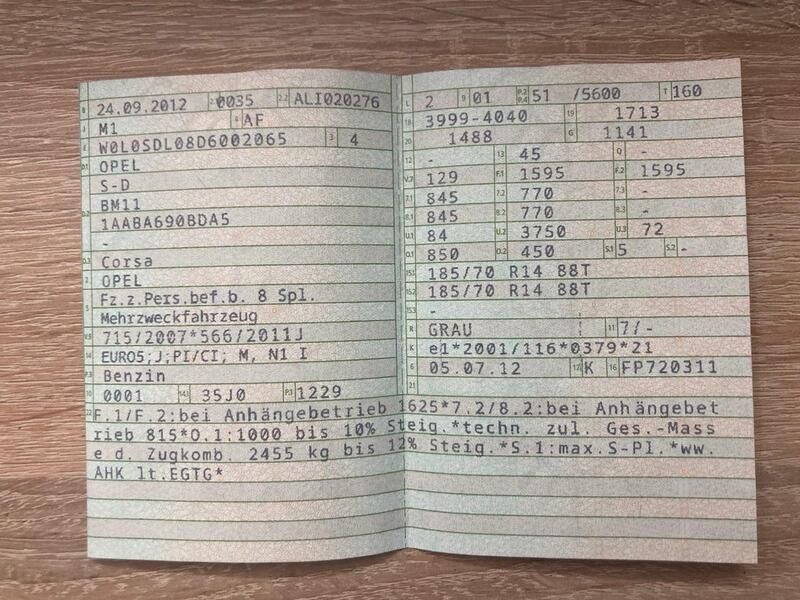 B 24.09.2012 2.1 0035 2.2 ALI020276
J M1 4 AF
E W0L0SDL08D6002065 3 4
D.1 OPEL
S-D
D.2 BM11
1AABA690BDA5
-
D.3 Corsa
2 OPEL
5 Fz.z.Pers.bef.b. 8 Spl.
Mehrzweckfahrzeug
V.9 715/2007*566/2011J
14 EURO5;J;PI/CI; M, N1 I
P.3 Benzin
10 0001 14.1 35J0 P.1 1229
L 2 9 01 P.2 P.4 51 /5600 T 160
18 3999-4040 19 1713
20 1488 G 1141
12 - 13 45 Q -
V.7 129 F.1 1595 F.2 1595
7.1 845 7.2 770 7.3 -
8.1 845 8.2 770 8.3 -
U.1 84 U.2 3750 U.3 72
O.1 850 O.2 450 S.1 5 S.2 -
15.1 185/70 R14 88T
15.2 185/70 R14 88T
15.3 -
R GRAU 11 7/-
K e1*2001/116*0379*21
6 05.07.12 17 K 16 FP720311
21
22 F.1/F.2:bei Anhängebetrieb 1625*7.2/8.2:bei Anhängebet
rieb 815*O.1:1000 bis 10% Steig.*techn. zul. Ges.-Mass
e d. Zugkomb. 2455 kg bis 12% Steig.*S.1:max.S-Pl.*ww.
AHK lt.EGTG*